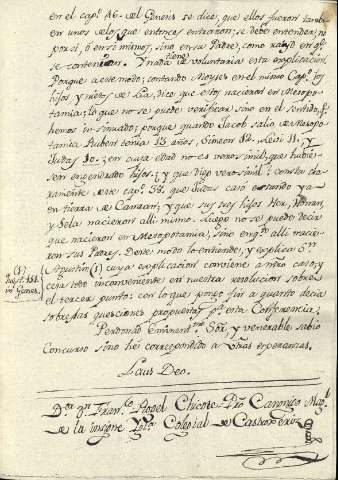 en el cap.º 46. del Genesis se dice, que ellos fueron tamb.n
en unos de los que entonces entraron; se debe entender, no
por si, ò en si mismos, sino en su Padre, como raiz en q.e
se contenian. Y nada tiene de voluntaria esta explicacion.
Porque à este modo; contando Moyses en el mismo Cap.º los
hijos, y nietos de Lia, dice que estos nacieron en Mesopo-
tamia; lo que no se puede verificar sino en el sentido, q.e
hemos insinuado; porque quando Jacob salio de Mesopo-
tamia Ruben tenia 13 años, Simeon 12. Levi 11. Y
Judas 10.; en cuya edad no es verosimil, que hubie-
sen engendrado hijos; y que digo verosimil; consta cla-
ramente de este cap.º 38. que Judas casò estando ya
en tierra de Canaan; y que sus tres hijos Her, Honan,
y Sela nacieron alli mismo. Luego no se puede decir
que nacieron en Mesopotamia, sino en q.to alli nacie-
ron sus Padres. De este modo lo entiende, y explica S.n
Agustin (1) cuya explicacion conviene à n̄ro caso; y
cesa todo inconveniente en nuestra resolucion sobre
el tercer punto: con lo que pongo fin à quanto decia
sobre las questiones propuestas p.a esta Conferencia.
(1)
in Genes.
Perdonad Eminent.mo Sōr, y venerable sabio
Concurso sino hè correspondido à v̄ras esperanzas.
Laus Deo.
D.or d.n Fran.co Angel Chicote Pro Canonigo Mag.l
de la insigne Ygl.a Colegial de Castroxeriz